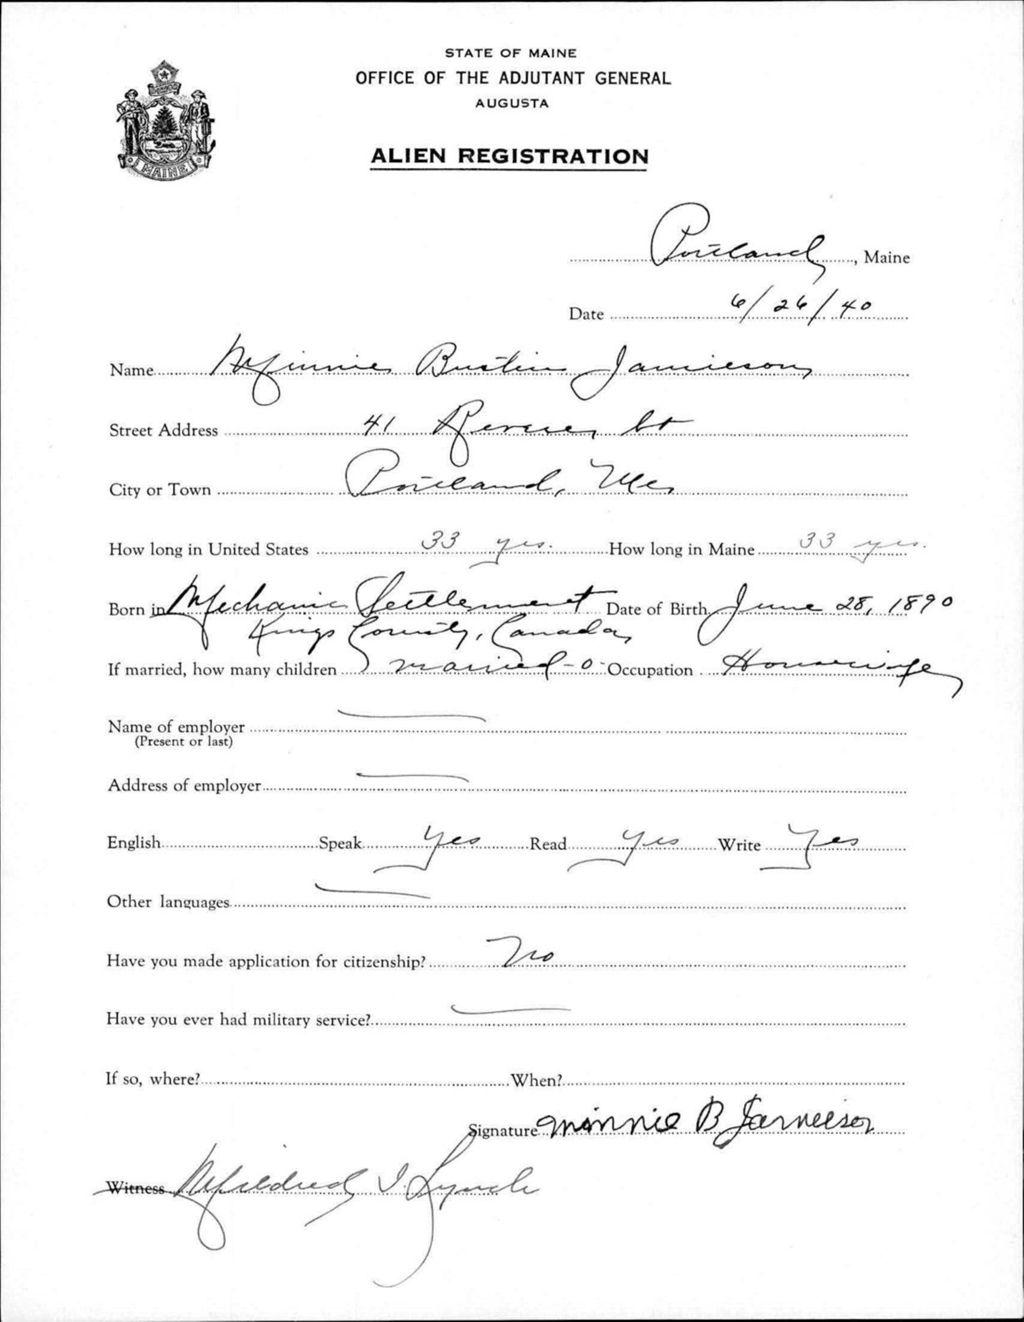 STATE OF MAINE
OFFICE OF THE ADJUTANT GENERAL
AUGUSTA
ALIEN REGISTRATION
MAINE
Portland, Maine
Date 6/26/40
Name Minnie Bustin Jamieson
Street Address 41 Revere St
City or Town Portland, Me,
How long in United States 33 yrs. How long in Maine 33 yrs.
Born in Mechanic Settlement Date of Birth June 28, 1890
Kings County, Canada,
If married, how many children married - 0 - Occupation Housewife
Name of employer
(Present or last)
Address of employer
English Speak Yes Read Yes Write Yes
Other languages
Have you made application for citizenship? No
Have you ever had military service?
If so, where? When?
Signature Minnie B Jamieson
Witness Mildred I Lynch